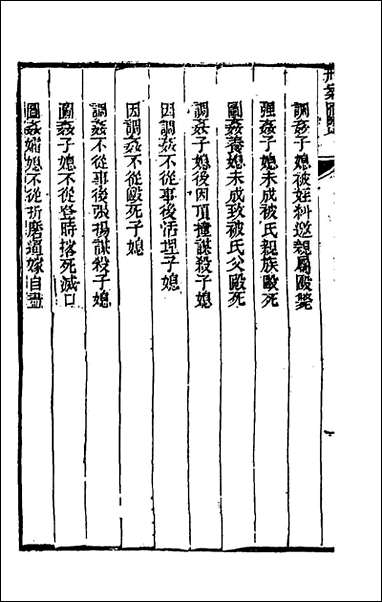 調姦子媳被姪糾邀親屬毆斃
强姦子媳未成被氏親族毆死
圖姦養媳未成致被氏父毆死
調姦子媳後因頂撞謀殺子媳
因調姦不從事後活埋子媳
因調姦不從毆死子媳
調姦不從事後張揚謀殺子媳
圖姦子媳不從登時掐死滅口
圖姦孀媳不從折磨逼嫁自盡